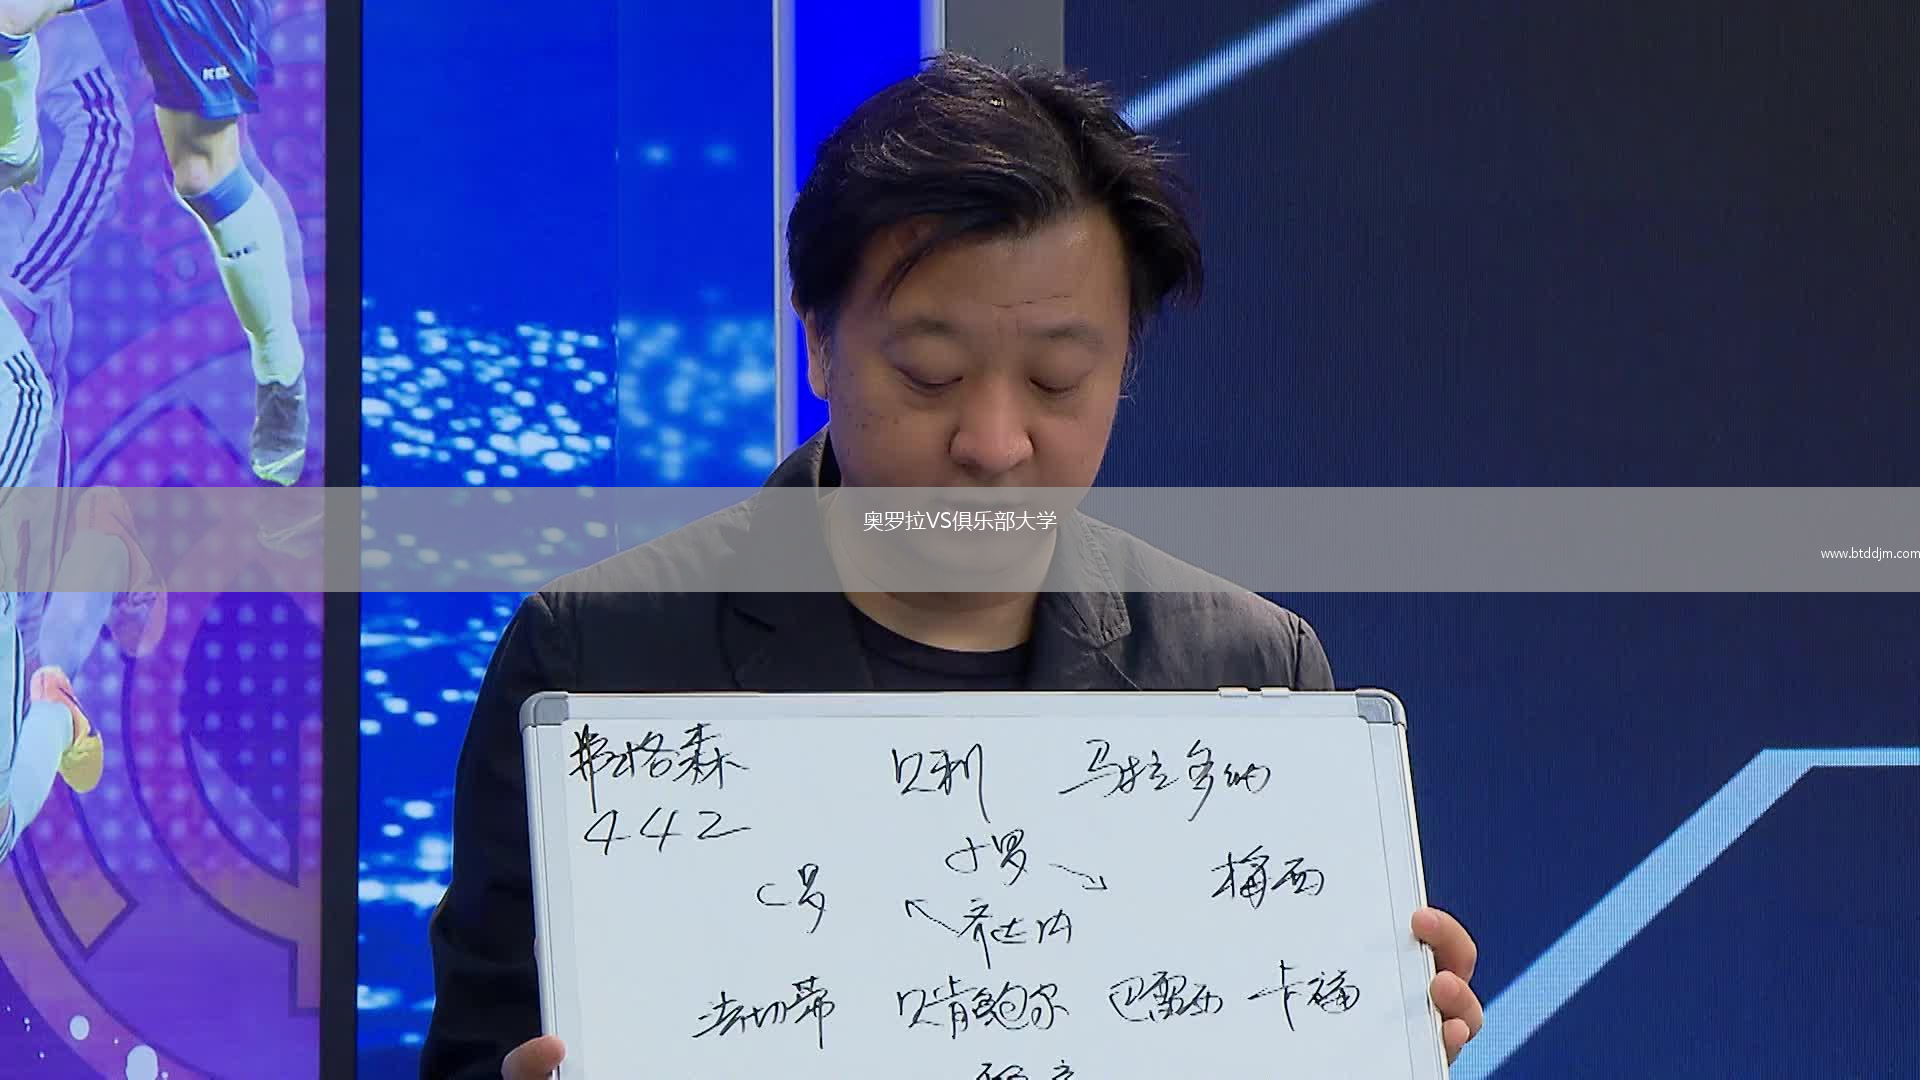 奥罗拉VS俱乐部大学
www.btddjm.com
弗格森 贝利 马拉多纳
442
小罗
C罗 梅西
齐达内
法切蒂 贝肯鲍尔 巴雷西 卡福